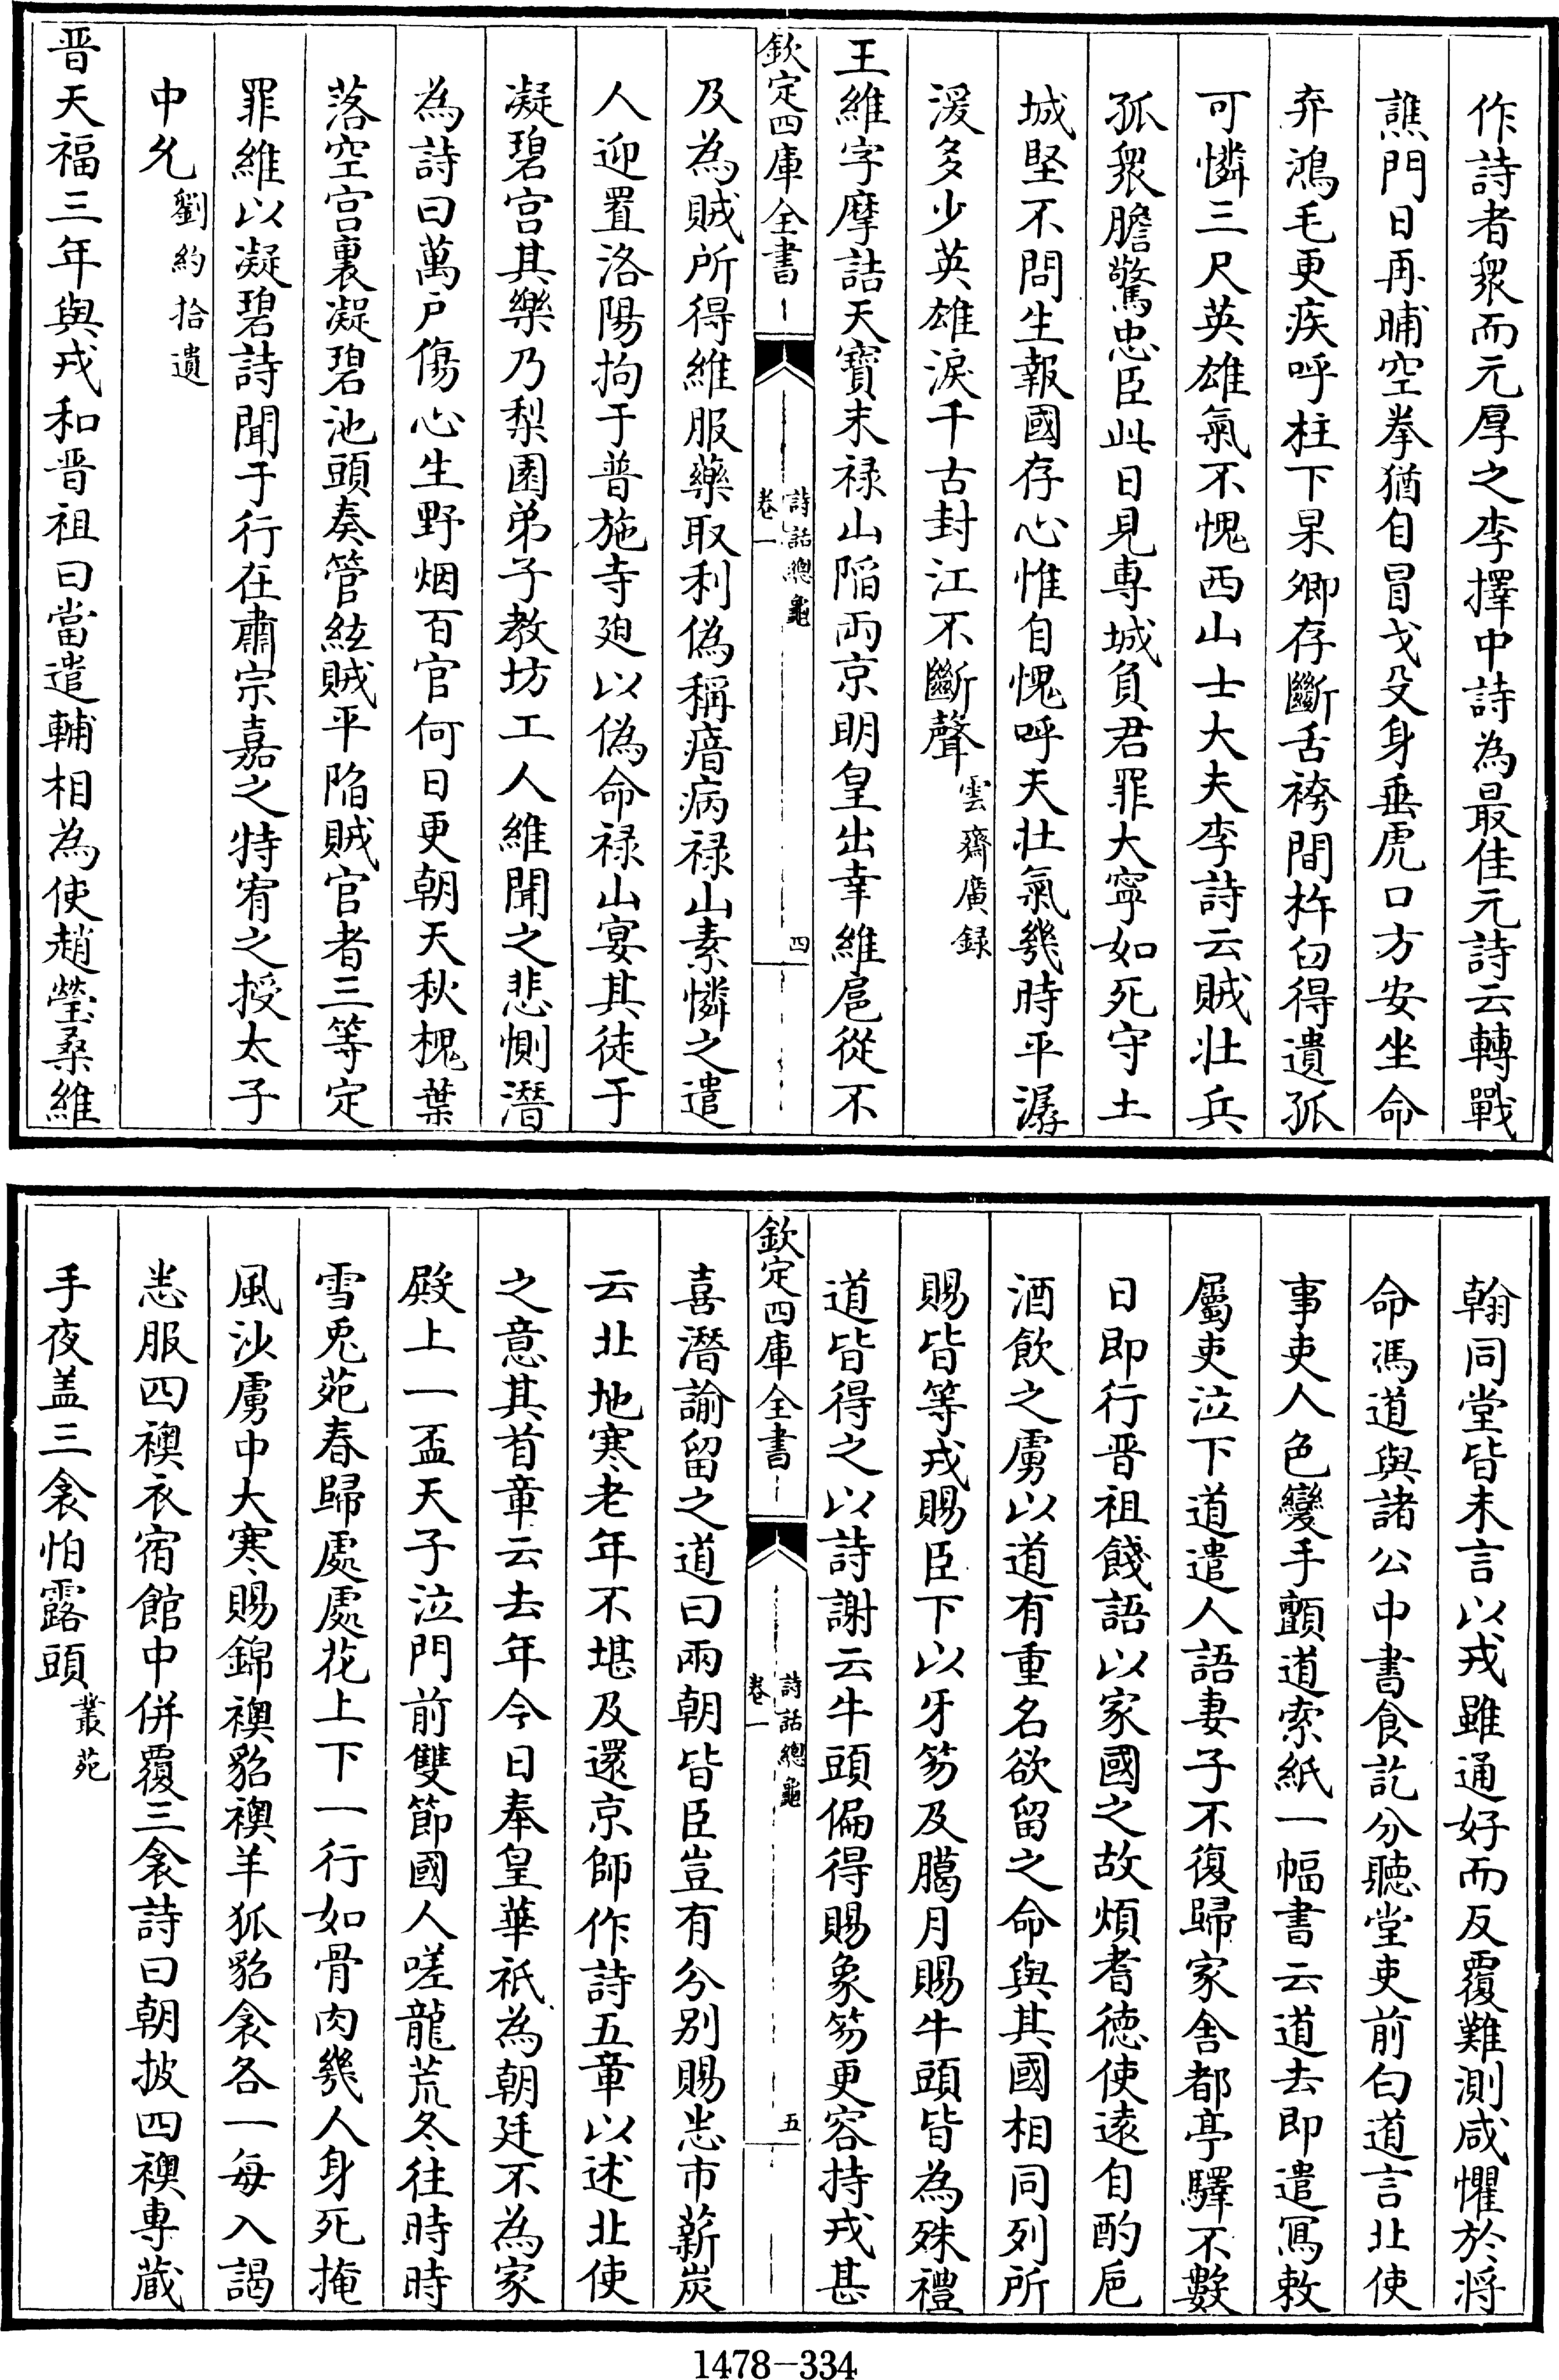 作詩者衆而元厚之李擇中詩為最佳元詩云轉戰
譙門日再晡空拳猶自冒戈殳身垂虎口方安坐命
弃鴻毛更疾呼柱下杲卿存斷舌袴間杵臼得遺孤
可憐三尺英雄氣不愧西山士大夫李詩云賊壯兵
孤衆膽驚忠臣此日見専城負君罪大寧如死守土
城堅不問生報國存心惟自愧呼天壯氣幾時平潺
湲多少英雄淚千古封江不斷聲雲齋廣録
王維字摩詰天寶末禄山陷兩京明皇出幸維扈從不
欽定四庫全書
詩話總龜
卷一
四
及為賊所得維服藥取利偽稱瘖病禄山素憐之遣
人迎置洛陽拘于普施寺廹以偽命禄山宴其徒于
凝碧宫其樂乃梨園弟子教坊工人維聞之悲惻潛
為詩曰萬戶傷心生野烟百官何日更朝天秋槐葉
落空宫裏凝碧池頭奏管絃賊平陷賊官者三等定
罪維以凝碧詩聞于行在肅宗嘉之特宥之授太子
中允劉約拾遺
晋天福三年與戎和晋祖曰當遣輔相為使趙瑩桑維
翰同堂皆未言以戎雖通好而反覆難測咸懼於將
命馮道與諸公中書食訖分聽堂吏前白道言北使
事吏人色變手顫道索紙一幅書云道去即遣冩敕
屬吏泣下道遣人語妻子不復歸家舍都亭驛不數
日即行晋祖餞語以家國之故煩耆徳使逺自酌巵
酒飲之虜以道有重名欲留之命與其國相同列所
賜皆等戎賜臣下以牙笏及臈月賜牛頭皆為殊禮
道皆得之以詩謝云牛頭偏得賜象笏更容持戎甚
欽定四庫全書
詩話總龜
卷一
五
喜潛諭留之道曰兩朝皆臣豈有分别賜恙市薪炭
云北地寒老年不堪及還京師作詩五章以述北使
之意其首章云去年今日奉皇華祇為朝廷不為家
殿上一盃天子泣門前雙節國人嗟龍荒冬往時時
雪兎苑春歸處處花上下一行如骨肉幾人身死掩
風沙虜中大寒賜錦襖貂襖羊狐貂衾各一每入謁
恙服四襖衣宿館中併覆三衾詩曰朝披四襖専蔵
手夜盖三衾怕露頭叢苑
1478-334